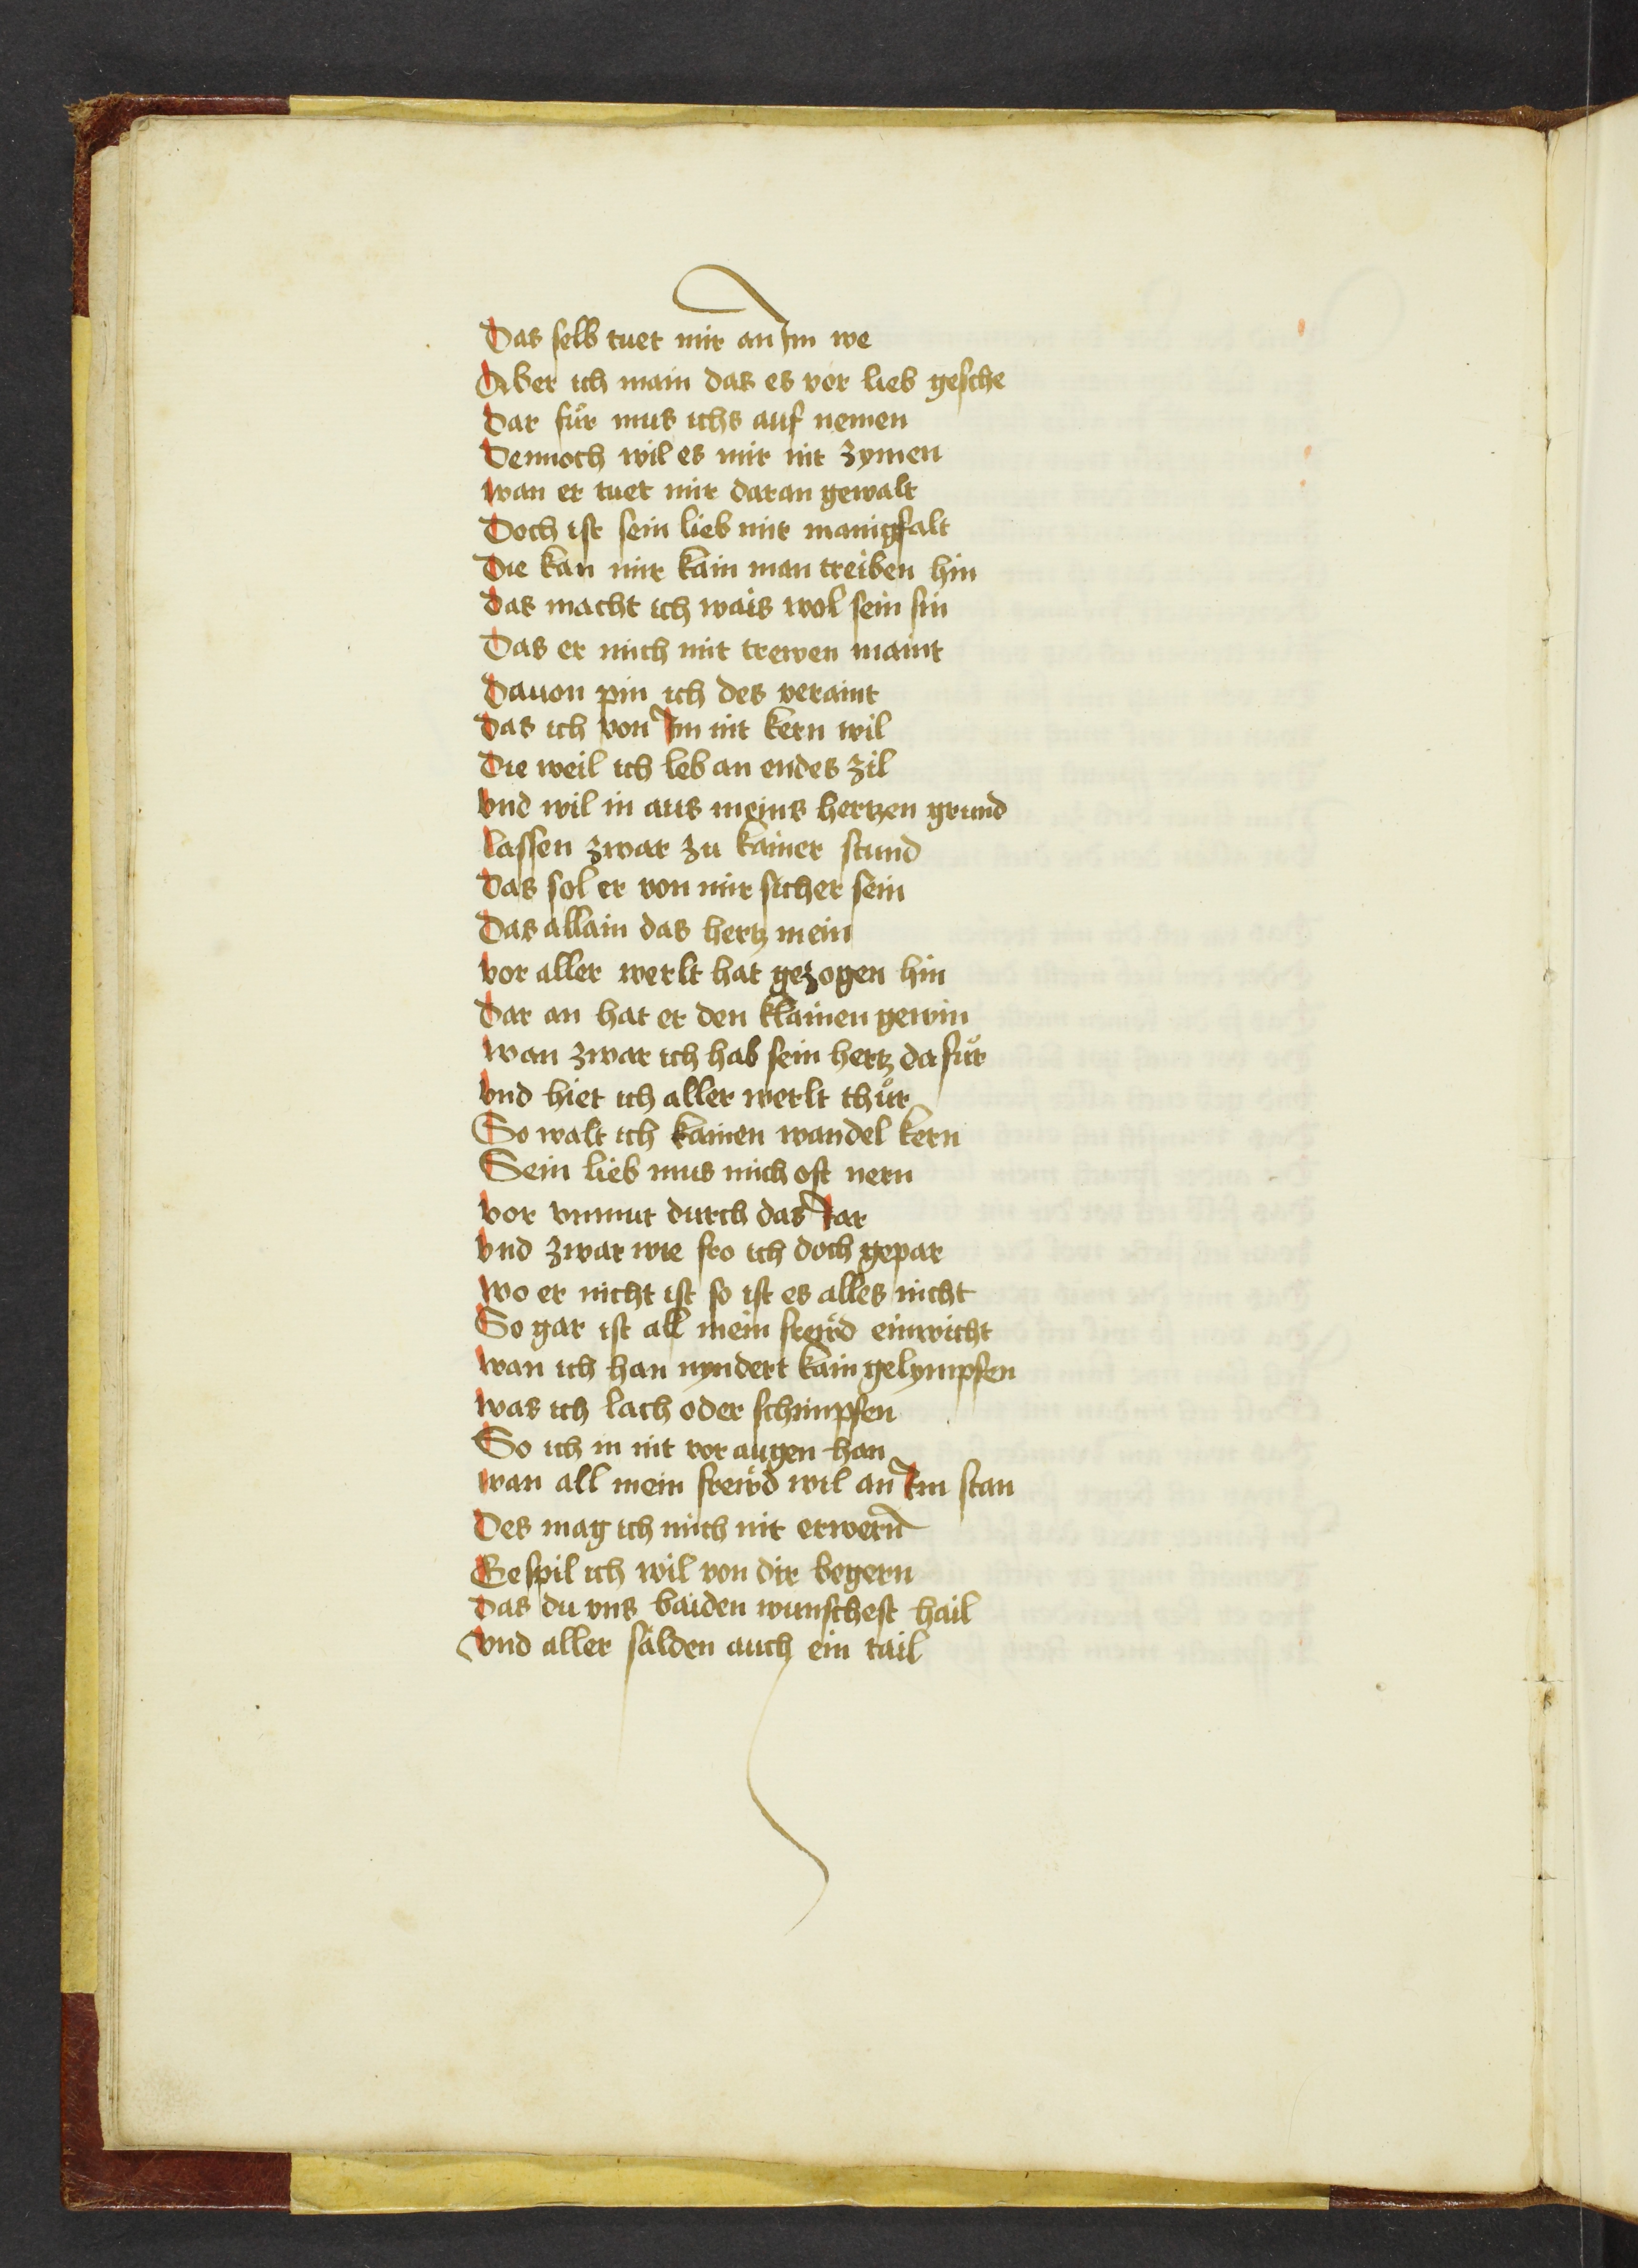 Das selb tuet mir an Im we
Aber ich main das es vor lieb gesche
Dar für mus ichs auf nemen
Dennoch wil es mir nit zymen
wan er tuet mir daran gewalt
Doch ist sein lieb mir manigfalt
Die kan mir kain man treiben hin
das macht ich wais wol sein sin
Das er mich mit trewen maint
Dauon pin ich des veraint
das ich von Im nit kern wil
Die weil ich leb an endes zil
vnd wil in aus meins hertzen grund
lassen zwar zu kainer stund
das sol er von mir sicher sein
Das allain das hertz mein
vor aller werlt hat gezogen hin
Dar an hat er den klainen gewin
wan zwar ich hab sein hertz da für
vnd hiet ich aller werlt thür
So walt ich kainen wandel kern
Sein lieb mus mich oft nern
vor vnmut durch das Iar
vnd zwar wie fro ich doch gepar
wo er nicht ist so ist es alles nicht
So gar ist all mein frewd einwicht
wan ich han nyndert kain gelympfen
was ich lach oder schimpfen
So ich in nit vor augen han
wan all mein frewd wil an Im stan
Des mag ich mich nit erwern
Gespil ich wil von dir begern
das du vns baiden wunschest hail
vnd aller sälden auch ein tail